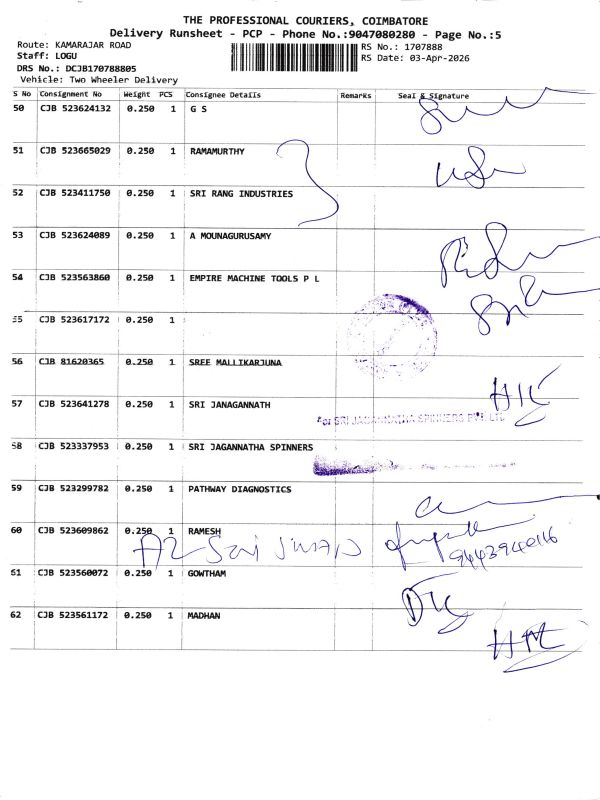 THE PROFESSIONAL COURIERS, COIMBATORE
Delivery Runsheet - PCP - Phone No.:9047080280 - Page No.:5
Route: KAMARAJAR ROAD RS No.: 1707888
Staff: LOGU RS Date: 03-Apr-2026
DRS No.: DCJB170788805
Vehicle: Two Wheeler Delivery
S No Consignment No Weight PCS Consignee Details Remarks Seal & Signature
50 CJB 523624132 0.250 1 G S
51 CJB 523665029 0.250 1 RAMAMURTHY
52 CJB 523411750 0.250 1 SRI RANG INDUSTRIES
53 CJB 523624089 0.250 1 A MOUNAGURUSAMY
54 CJB 523563860 0.250 1 EMPIRE MACHINE TOOLS P L
55 CJB 523617172 0.250 1
56 CJB 81620365 0.250 1 SREE MALLIKARJUNA
57 CJB 523641278 0.250 1 SRI JANAGANNATH
For SRI JAGANNATHA SPINNERS PVT. LTD
58 CJB 523337953 0.250 1 SRI JAGANNATHA SPINNERS
59 CJB 523299782 0.250 1 PATHWAY DIAGNOSTICS
60 CJB 523609862 0.250 1 RAMESH
61 CJB 523560072 0.250 1 GOWTHAM
62 CJB 523561172 0.250 1 MADHAN